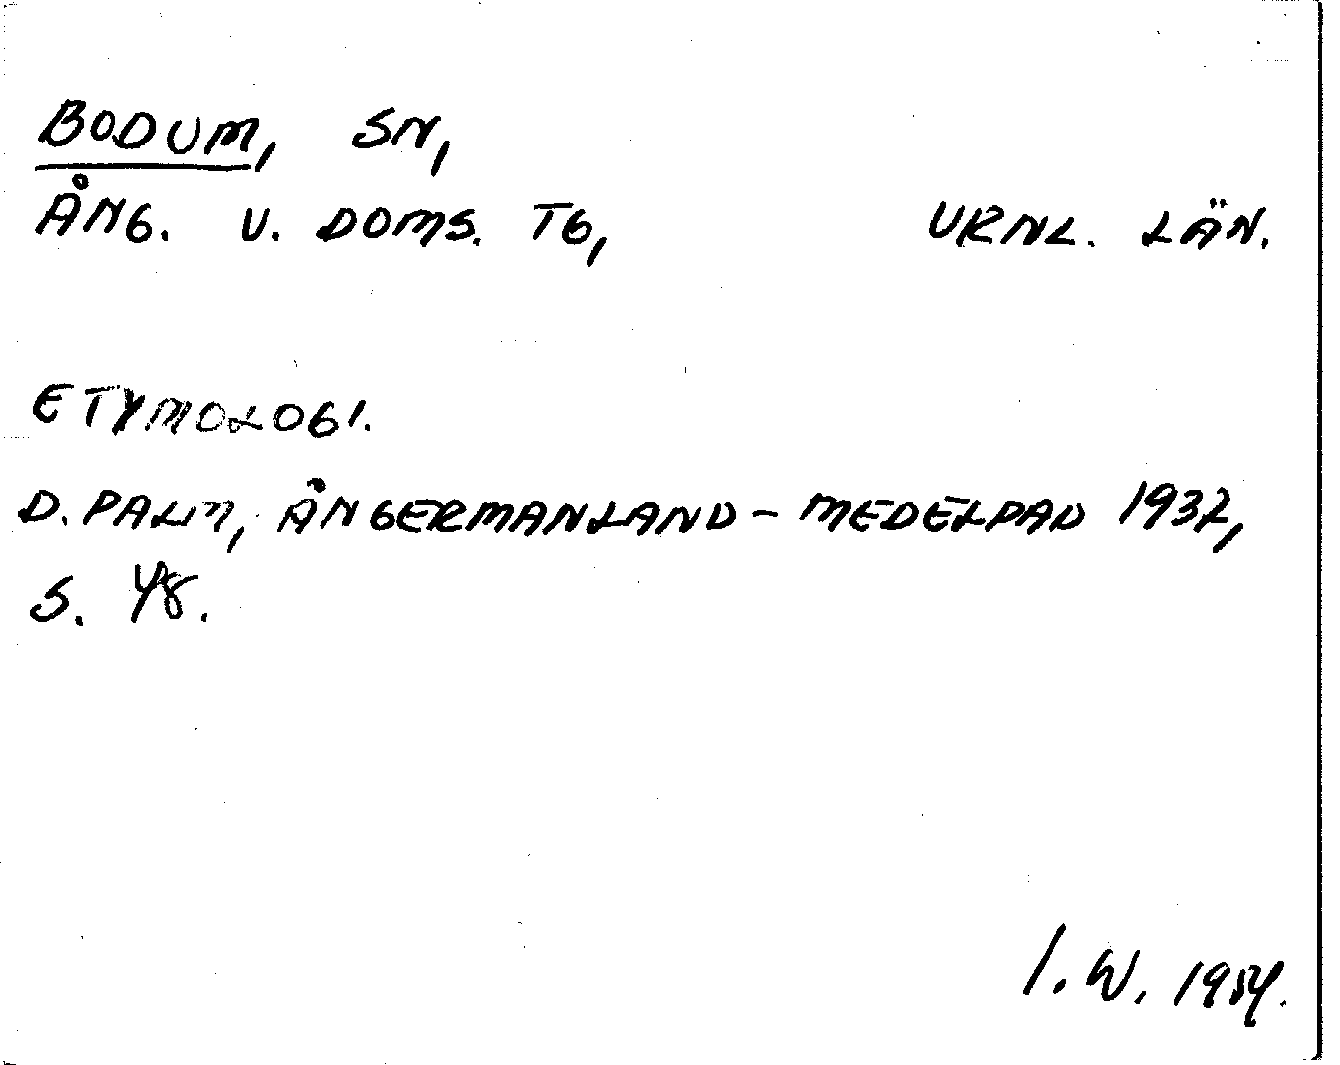 BODUM, SN,
ÅNG. V. DOMS. TG, VRNL. LÄN.
ETYMOLOGI.
D. PALM, ÅNGERMANLAND - MEDELPAD 1937,
S. 48.
I. W. 1954.